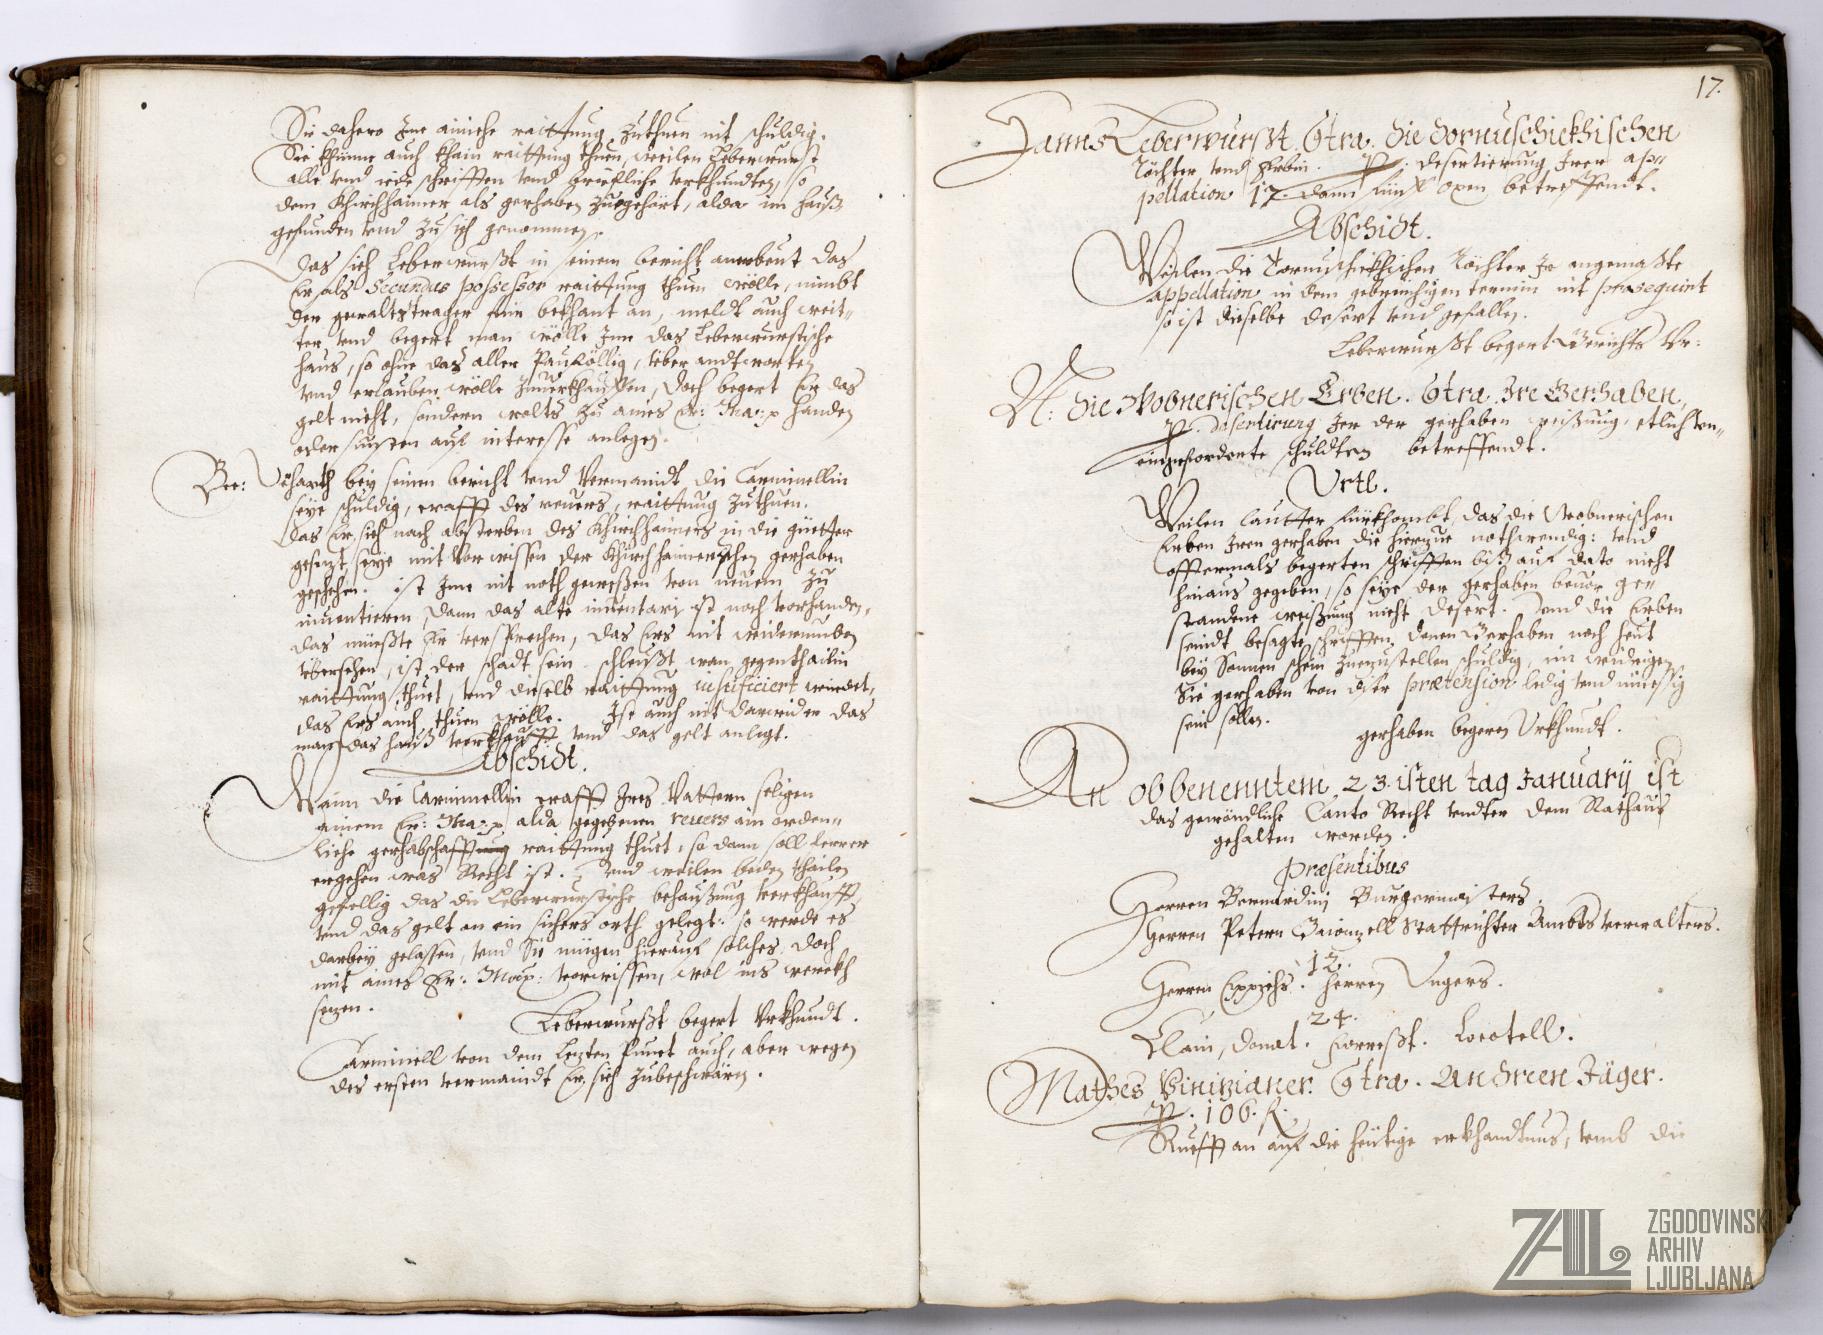 Sie dahero Ime ainiche raittung zuthuen nit schuldig.
Sie khünne auch khain raittung thuen, weilen Leberwurst
alle vnd iede schrifften vnd briefliche vrkhundten, so
dem Khirchhaimer als gerhaben zuegehört, alda im hauß
gefunden vnd zu sich genommen.
Das sich Leberwurßt in seinem bericht anerbeut das
Er als Secundus possessor raittung thuen wölle, nimbt
der gewaltstrager für bekhant an, meldt auch weit-
ter vnd begert man wölle Ime das Leberwurstische
haus, so ohne das aller Pauföllig, über andtworten
vnd erlauben wölle zuuerkhauffen, doch begert Er das
gelt nicht, sondern wolts zu aines Er: Ma: handen
oder sunsten auf interesse anlegen.
Ber: Verharth bey seinem bericht vnd Vermaindt, die Carminellin
seye schuldig, crafft des reuers, raittung zuthuen.
Das Er sich nach absterben des Khirchhaimers in die güetter
gesezt, seye mit Vorwissen der Khirchhaimerischen gerhaben
geschehen. ist Ime nit noth gewesen von neuem zu
inuentieren, dann das alte inuentary ist noch vorhanden,
das müeßte Er versprechen, das Ers nit
übersehen, ist der schadt sein. schleußt, wan gegenthailin
raittung thuet, vnd dieselb raittung iusticiert wirdet,
das Ers auch thuen wölle. Ist auch nit darwider das
man das hauß verkhaufft vnd das gelt anlegt.
Abschidt.
Wann die Carminellin crafft Ires Vattern seligen
ainem Er: Ma: alda gegebenen reuers ain orden-
liche gerhabschafft raittung thuet, so dann soll ferrer
ergehen was Recht ist. Vnd weilen beden thailen
gefellig das die Leberwurstische behaußung verkhaufft,
vnd das gelt an ein sichers orth gelegt: so werde es
darbey gelassen, vnd Sie mügen hierauf solches doch
mit aines Er: Mag: vorwissen, wol ins werckh
sezen.
Leberwurßt begert Vrkhundt.
Carminell von dem lezten Punct auch, aber wegen
des ersten vermaindt Er sich zubeschwärn.
17.
Janns Leberwurßt. Ctra. die Dornuschickhischen
Töchter vnd Erbin. P. desertierung Irer ap-
pellation 17. dann fünf oxen betreffendt.
Abschidt.
Weilen die Tornuschickhischen Töchter Ir angemaßte
appellation in dem gebreuchigen termin nit prosequirt
so ist dieselbe desert vnd gefallen.
Leberwurßt begert Gerichts Vr:
N: die Wobnerischen Erben. Ctra. Ire Gerhaben,
P. desertirung Irer der gerhaben weißung, etlich von-
eingeforderte schuldten betreffendt.
Vrtl.
Weilen lautter fürkhombt, das die Wobnerischen
Erben Iren gerhaben die hierzue nothwendig: vnd
offtermals begerten schrifften biß auf dato nicht
hinaus gegeben, so seye der gerhaben beuor ge-
standene weißung nicht desert. Vnd die Erben
seindt besagte schrifften, denen Gerhaben noch heut
bey Sonnen schein zuezustellen schuldig, im widrigen
Sie gerhaben von diser prætension ledig vnd müessig
sein sollen.
gerhaben begern Vrkhundt.
An obbenenntem 23.isten tag January ist
das gewöndliche Canto Recht vndter dem Rathaus
gehalten worden.
Præsentibus
Herren Bernardini Burgermaisters.
Herren Petern Statrichter Ambts verwalters.
12.
Herren Eppichs. Herren Vngers.
24.
Clain, Donat. Forrest.
Mathes Vinizianer. Ctra. Andreen Jäger.
P. 106. f.
Ruefft an auf die heutige erkhandtnus, vmb die
ZAL
ZGODOVINSKI
ARHIV
LJUBLJANA